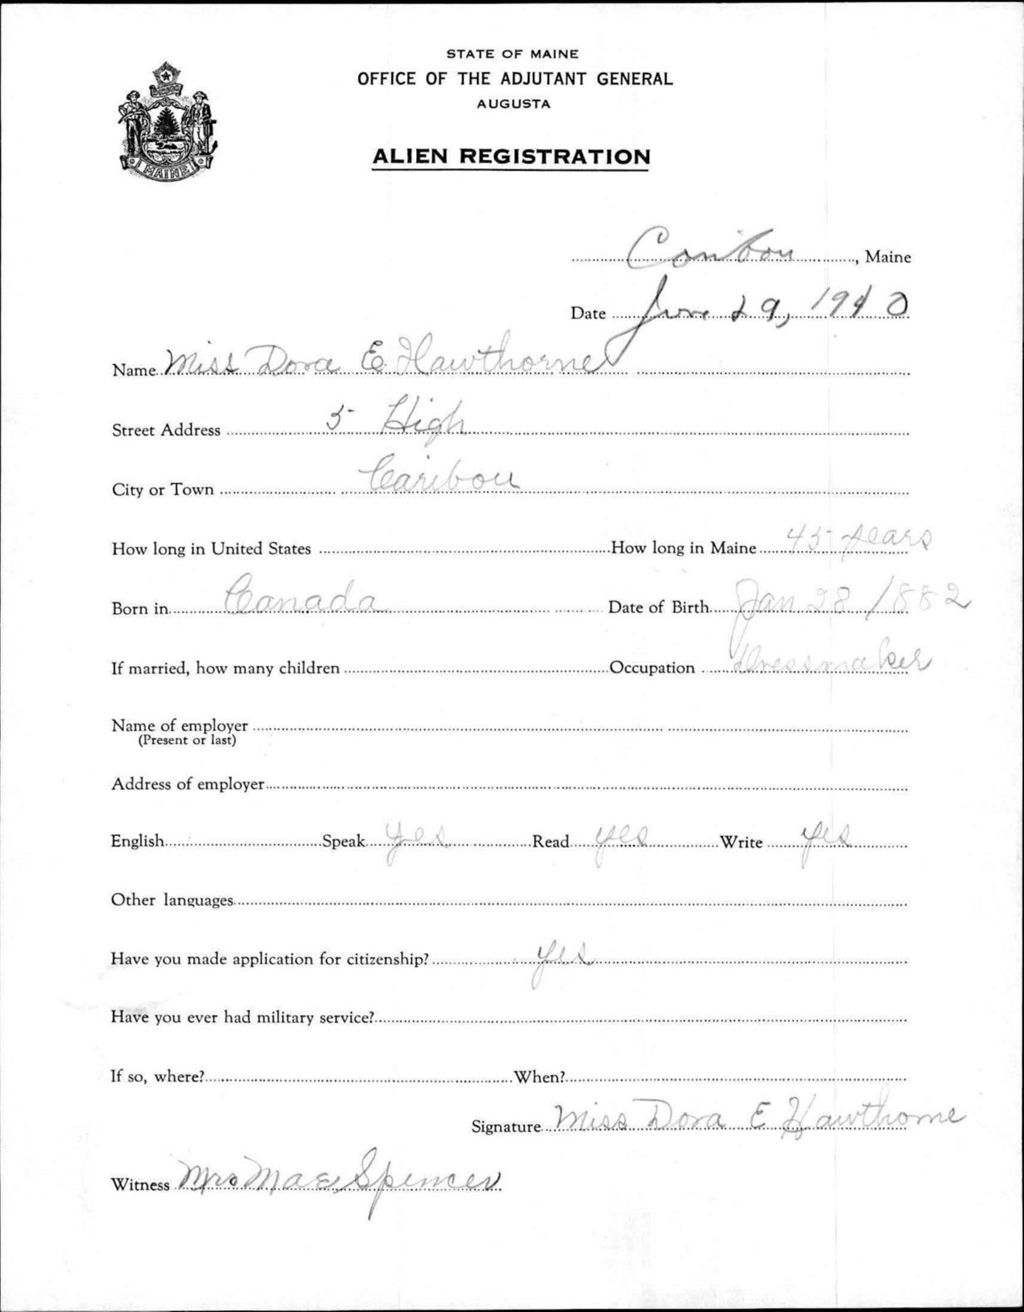 STATE OF MAINE
OFFICE OF THE ADJUTANT GENERAL
AUGUSTA
ALIEN REGISTRATION
MAINE
Caribou, Maine
Date June 29, 1940
Name Miss Dora E Hawthorne
Street Address 5 High
City or Town Caribou
How long in United States How long in Maine 45 years
Born in Canada Date of Birth Jan 28 1882
If married, how many children Occupation Dressmaker
Name of employer
(Present or last)
Address of employer
English Speak yes Read yes Write yes
Other languages
Have you made application for citizenship? yes
Have you ever had military service?
If so, where? When?
Signature Miss Dora E Hawthorne
Witness Mrs Mae Spencer